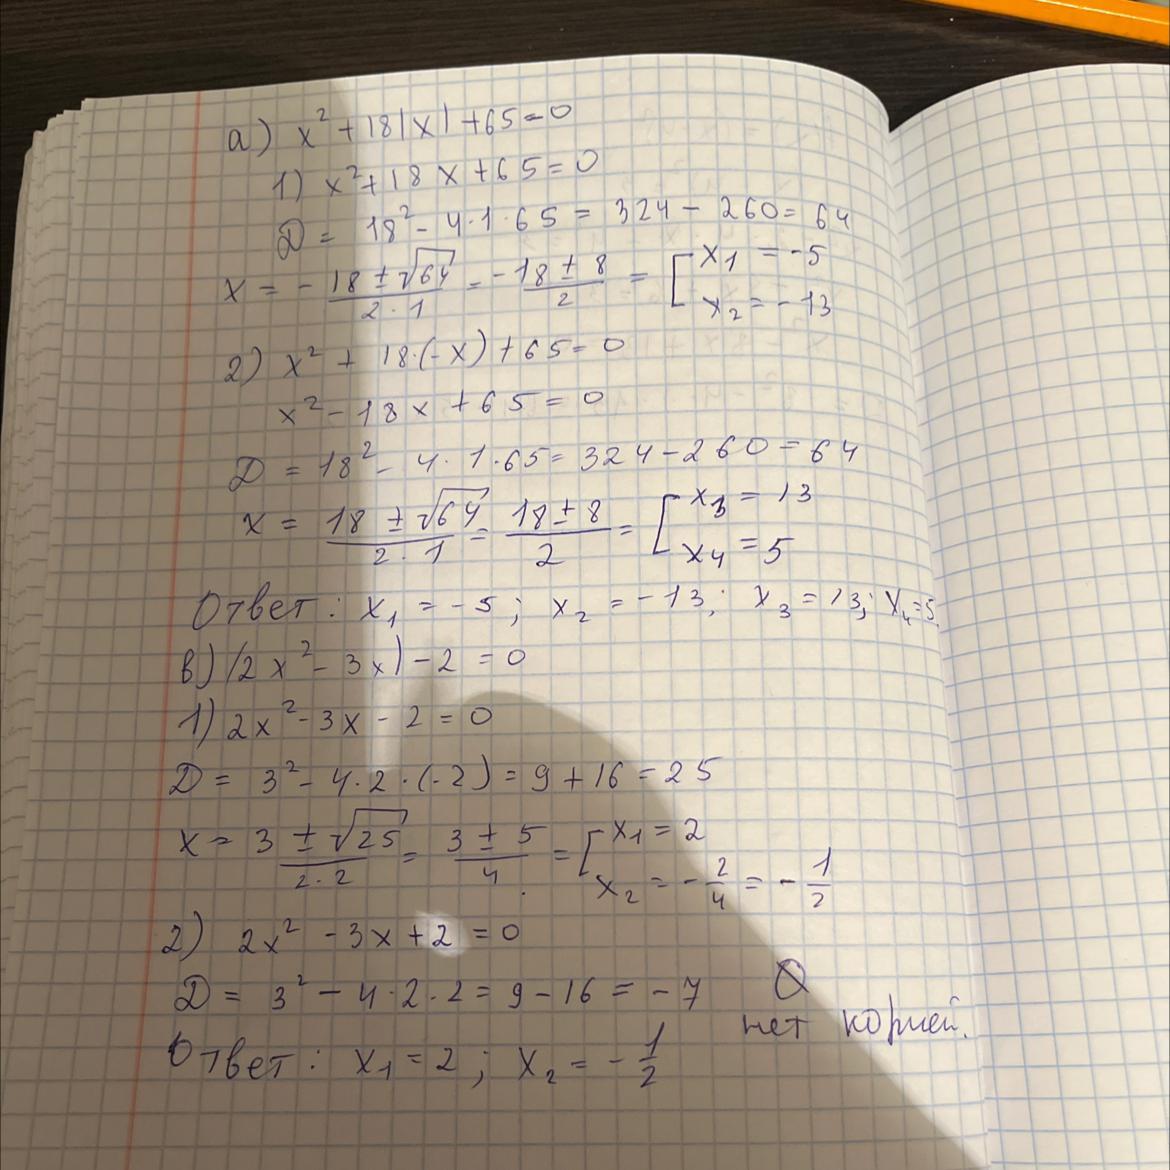 а) x² + 18|x| + 65 = 0
1) x² + 18x + 65 = 0
D = 18² - 4·1·65 = 324 - 260 = 64
x = - 18 ± √64 / 2·1 = - 18 ± 8 / 2 = [ x₁ = -5 x₂ = -13
2) x² + 18·(-x) + 65 = 0
x² - 18x + 65 = 0
D = 18² - 4·1·65 = 324 - 260 = 64
x = 18 ± √64 / 2·1 = 18 ± 8 / 2 = [ x₃ = 13 x₄ = 5
Ответ: x₁ = -5; x₂ = -13; x₃ = 13; x₄ = 5.
в) |2x² - 3x| - 2 = 0
1) 2x² - 3x - 2 = 0
D = 3² - 4·2·(-2) = 9 + 16 = 25
x = 3 ± √25 / 2·2 = 3 ± 5 / 4 = [ x₁ = 2 x₂ = - 2/4 = - 1/2
2) 2x² - 3x + 2 = 0
D = 3² - 4·2·2 = 9 - 16 = -7 ∅
нет корней.
Ответ: x₁ = 2; x₂ = - 1/2